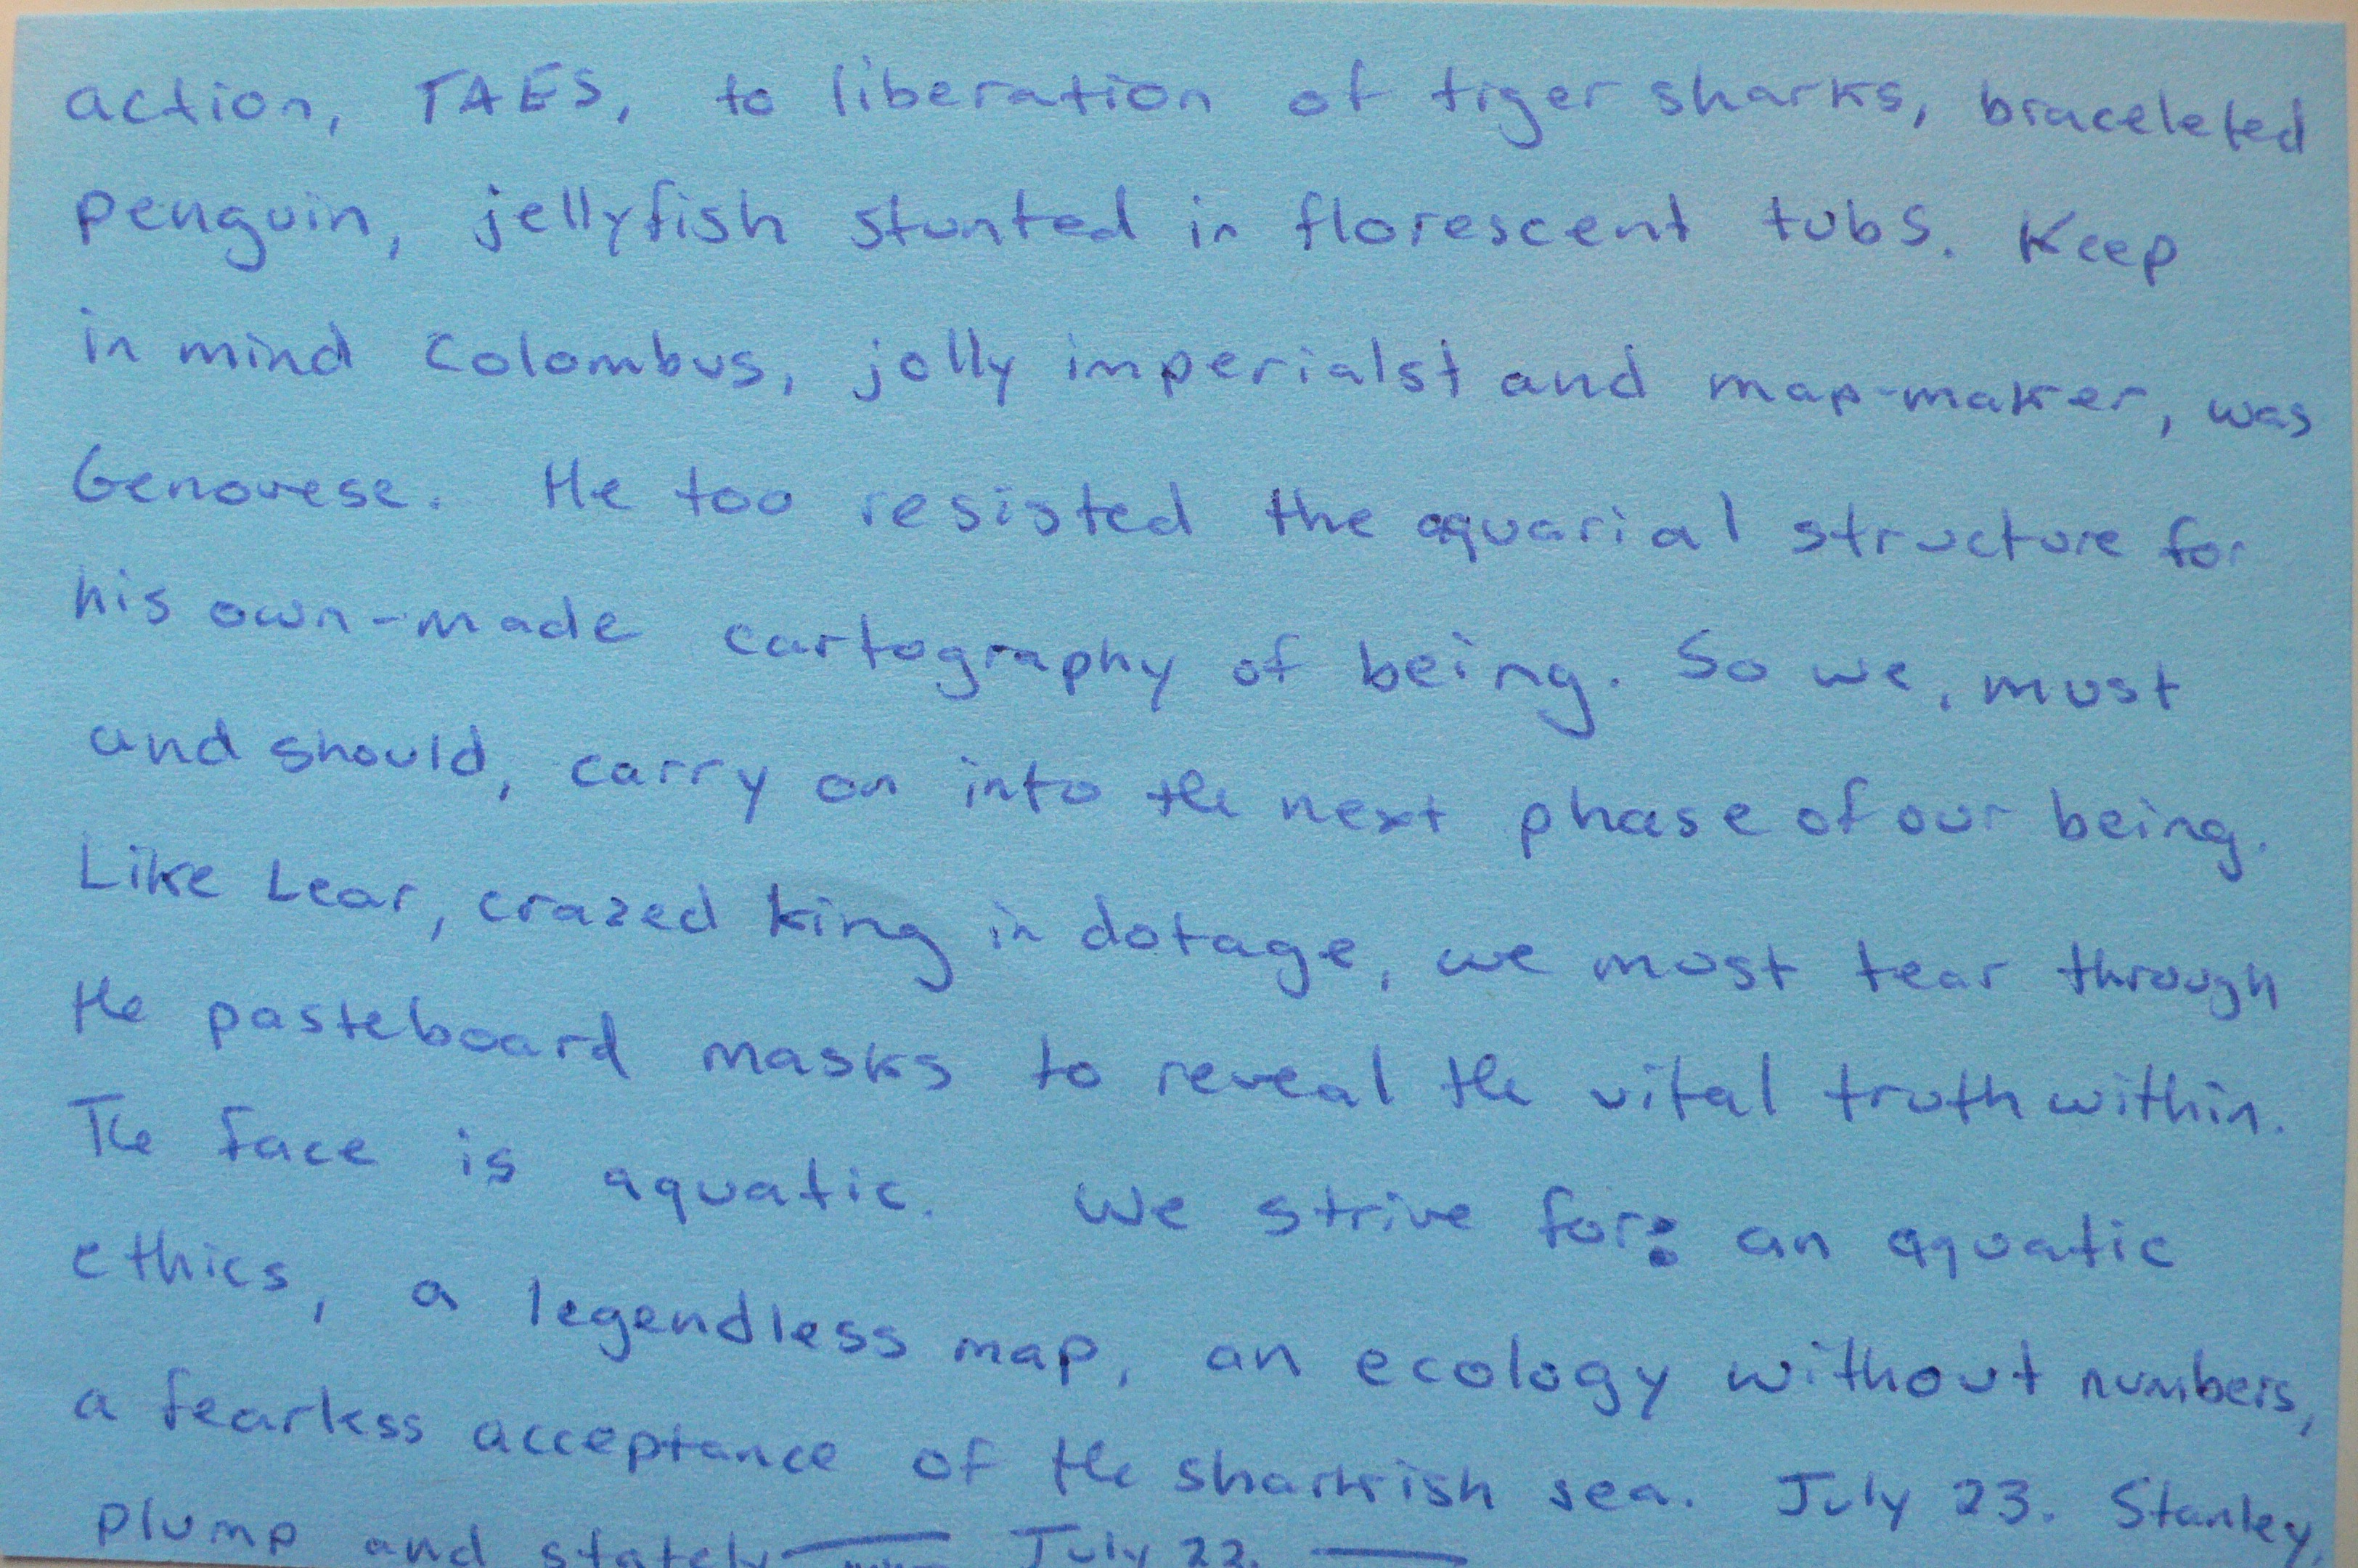 action, TAES, to liberation of tiger sharks, braceleted
penguin, jellyfish stunted in florescent tubs. Keep
in mind Colombus, jolly imperialst and map-maker, was
Genovese. He too resisted the aquarial structure for
his own-made cartography of being. So we, must
and should, carry on into the next phase of our being.
Like Lear, crazed king in dotage, we must tear through
the pasteboard masks to reveal the vital truth within.
The face is aquatic. We strive for: an aquatic
ethics, a legendless map, an ecology without numbers,
a fearless acceptance of the sharkish sea. July 23. Stanley,
plump and stately— July 22. —